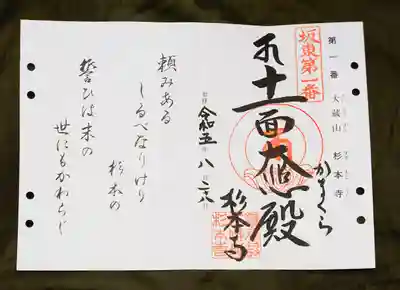 第一番
大蔵山 杉本寺
坂東第一番
かまくら
十一面大悲殿
杉本寺
令和五 八 二八
頼みある
しるべなりけり
杉本の
誓ひは末の
世にもかわらじ